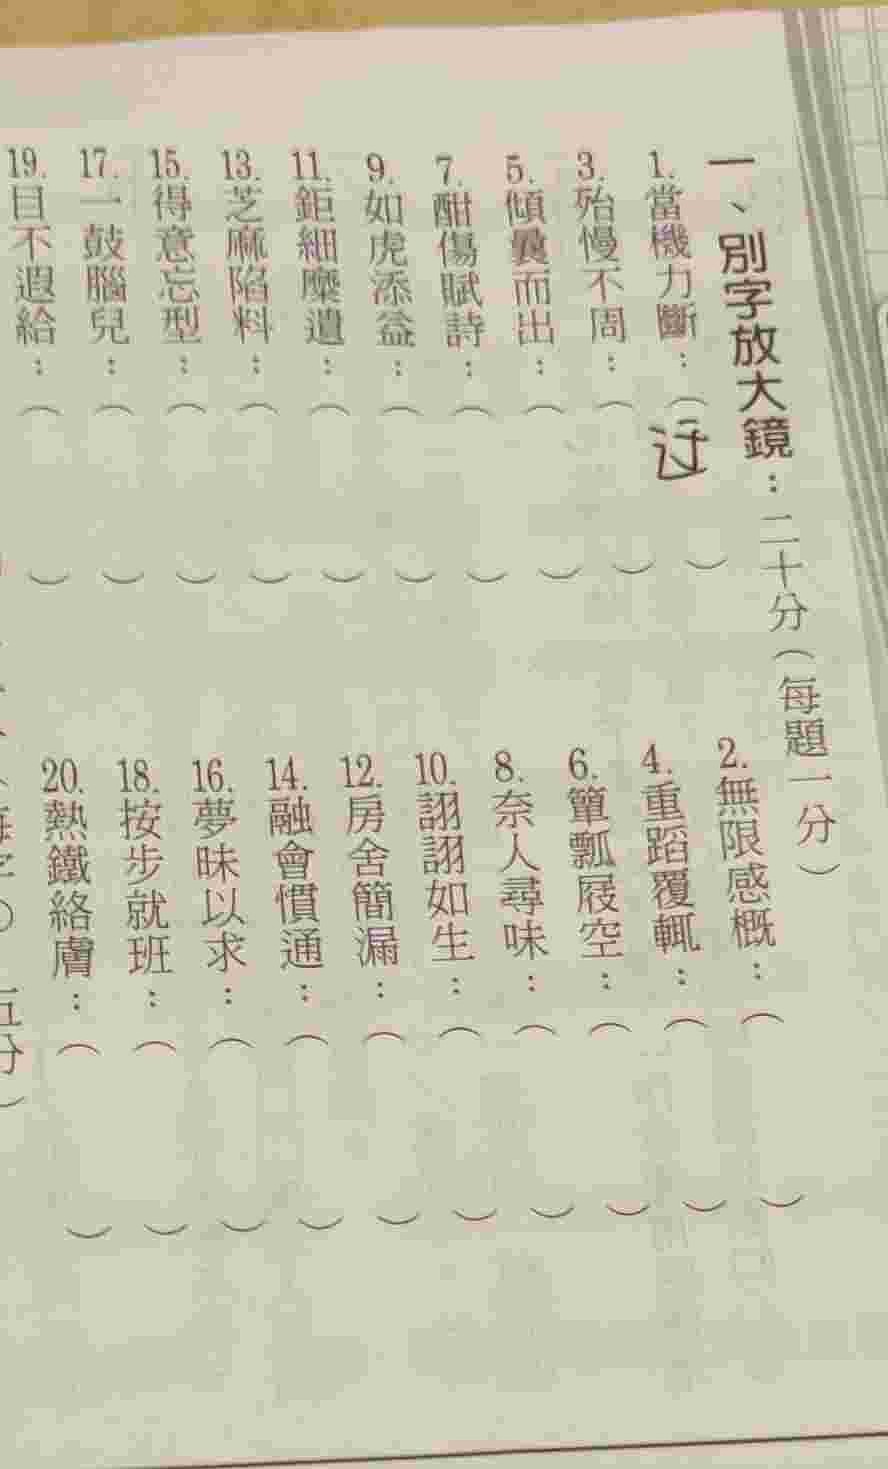 一、別字放大鏡：二十分（每題一分）
1.當機力斷：（　　）
2.無限感概：（　　）
3.殆慢不周：（　　）
4.重蹈覆輒：（　　）
5.傾曩而出：（　　）
6.簞瓢屐空：（　　）
7.酣傷賦詩：（　　）
8.奈人尋味：（　　）
9.如虎添益：（　　）
10.詡詡如生：（　　）
11.鉅細糜遺：（　　）
12.房舍簡漏：（　　）
13.芝麻陷料：（　　）
14.融會慣通：（　　）
15.得意忘型：（　　）
16.夢昧以求：（　　）
17.一鼓腦兒：（　　）
18.按步就班：（　　）
19.目不遐給：（　　）
20.熱鐵絡膚：（　　）
五分）